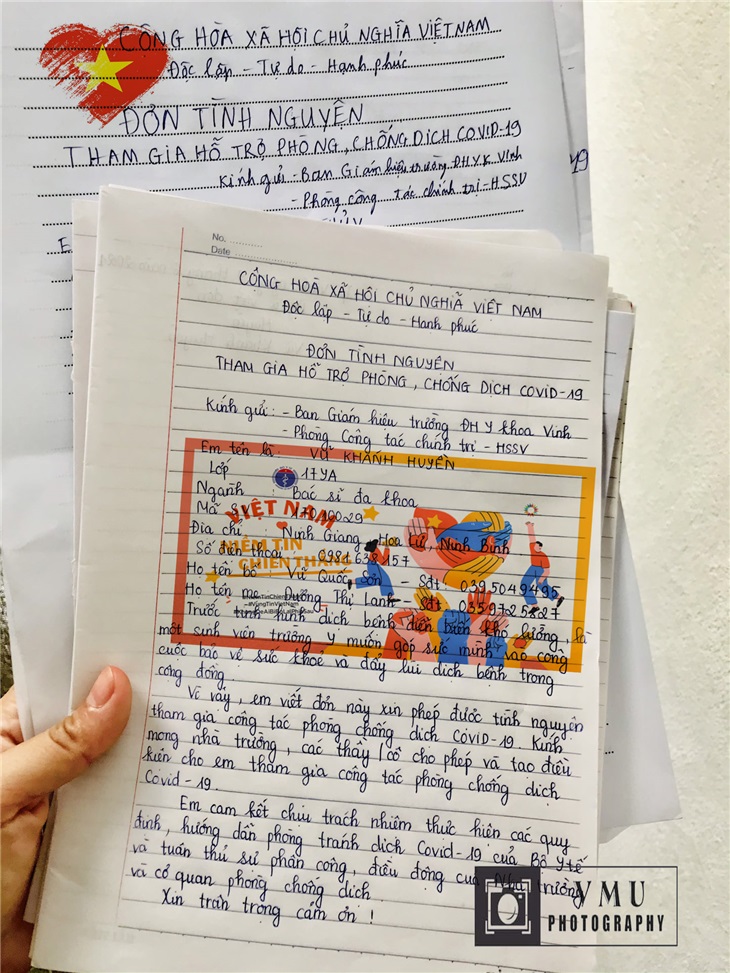 CỘNG HÒA XÃ HỘI CHỦ NGHĨA VIỆT NAM
Độc lập - Tự do - Hạnh phúc
ĐƠN TÌNH NGUYỆN
THAM GIA HỖ TRỢ PHÒNG, CHỐNG DỊCH COVID-19
Kính gửi - Ban Giám hiệu trường ĐHYK Vinh
- Phòng công tác chính trị - HSSV
19
No.
Date
CỘNG HOÀ XÃ HỘI CHỦ NGHĨA VIỆT NAM
Độc lập - Tự do - Hạnh phúc
ĐƠN TÌNH NGUYỆN
THAM GIA HỖ TRỢ PHÒNG, CHỐNG DỊCH COVID-19
Kính gửi: - Ban Giám hiệu trường ĐH Y khoa Vinh
- Phòng Công tác chính trị - HSSV
Em tên là: VŨ KHÁNH HUYỀN
Lớp : 17YA
Ngành : Bác sĩ đa khoa
Mã
VIỆT NAM
Địa chỉ : Ninh Giang, Hoa Lư, Ninh Bình
NIỀM TIN
CHIẾN THẮNG
Số điện thoại
Họ tên bố : Vũ Quốc - Sđt: 0395049495
Họ tên mẹ: Dương Thị Lanh - Sđt: 0359725827
#VungTinVietNam
Trước tình hình dịch bệnh diễn biến khó lường, là
một sinh viên trường y muốn góp sức mình vào công
cuộc bảo vệ sức khoẻ và đẩy lùi dịch bệnh trong
cộng đồng.
Vì vậy, em viết đơn này xin phép được tình nguyện
tham gia công tác phòng chống dịch COVID-19. Kính
mong nhà trường, các thầy/cô cho phép và tạo điều
kiện cho em tham gia công tác phòng chống dịch
Covid-19.
Em cam kết chịu trách nhiệm thực hiện các quy
định, hướng dẫn phòng tránh dịch Covid-19 của Bộ Y tế
và tuân thủ sự phân công, điều động của Nhà trường
và cơ quan phòng chống dịch.
Xin trân trọng cảm ơn!
VMU
PHOTOGRAPHY